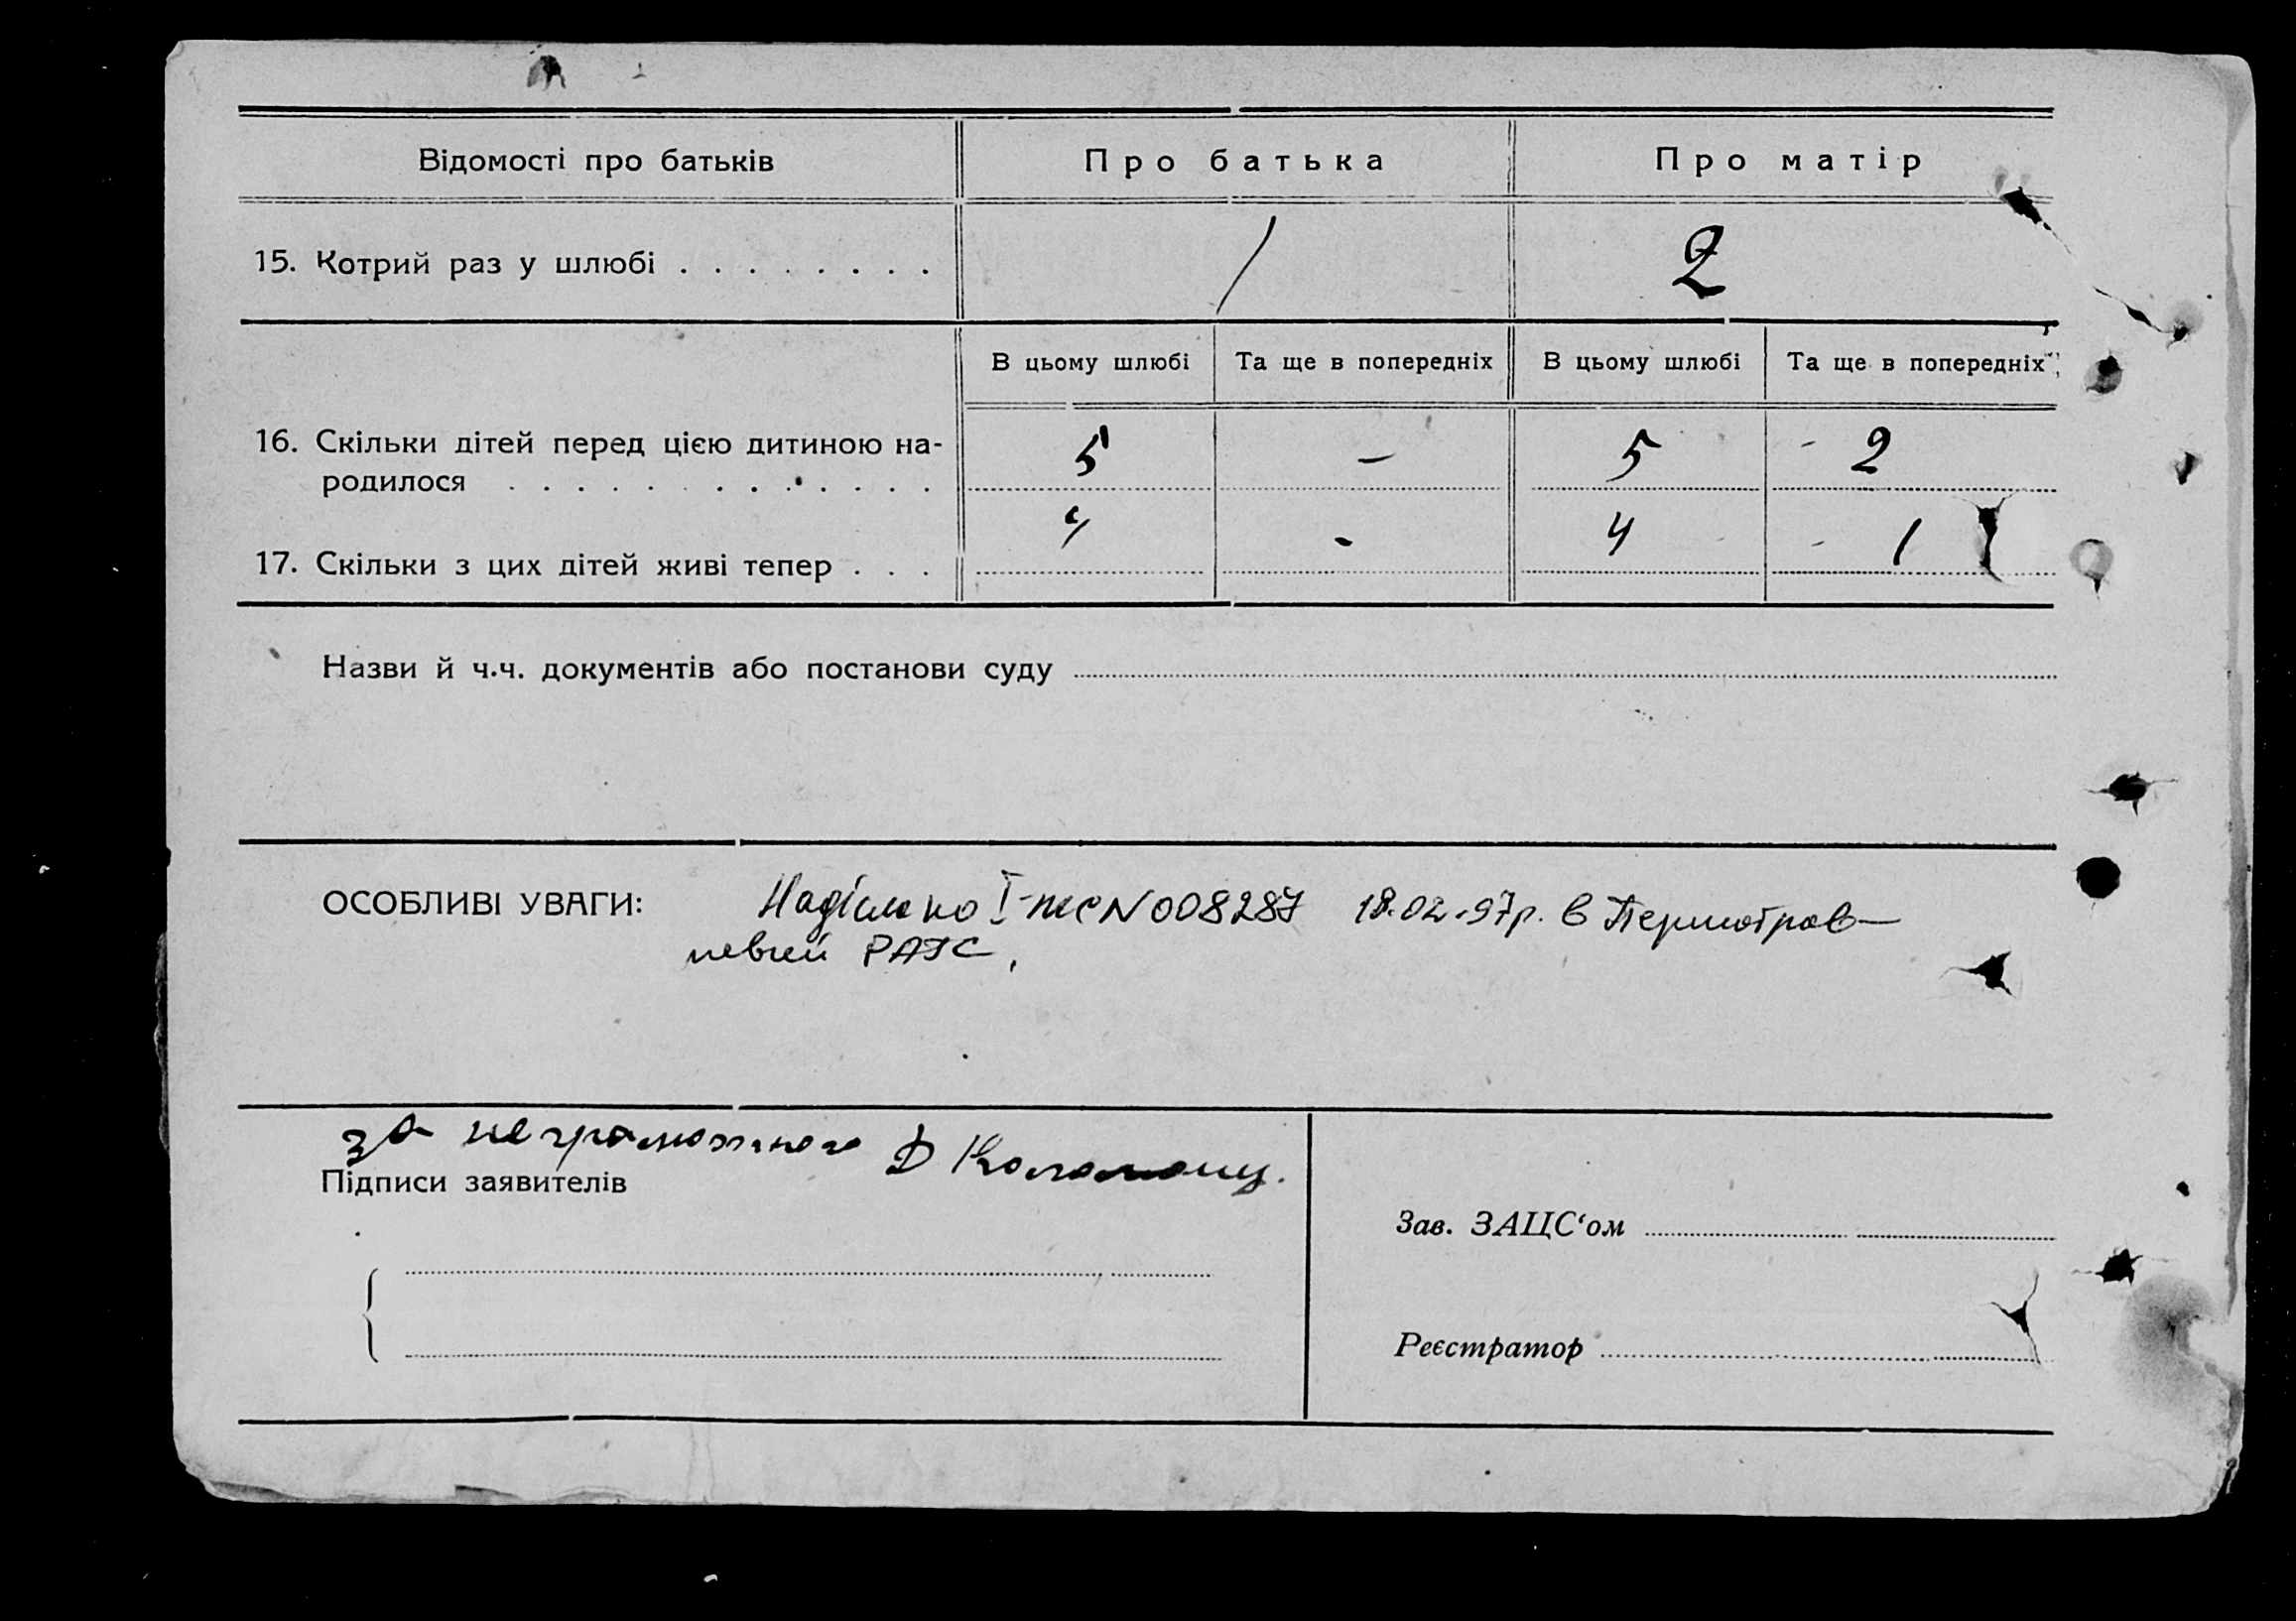 Відомості про батьків
Про батька
Про матір
15. Котрий раз у шлюбі . . . . . . . .
/
2
В цьому шлюбі
Та ще в попередніх
В цьому шлюбі
Та ще в попередніх
16. Скільки дітей перед цією дитиною на-
родилося . . . . . . . . . . . . .
5
-
5
- 2
17. Скільки з цих дітей живі тепер . . .
4
-
4
- 1
Назви й ч.ч. документів або постанови суду
ОСОБЛИВІ УВАГИ: Надіслано I-ЖС N 008287 18.02.97р. в
РАГС,
за неграмотного Д
Підписи заявителів
Зав. ЗАЦС‘ом
Реєстратор